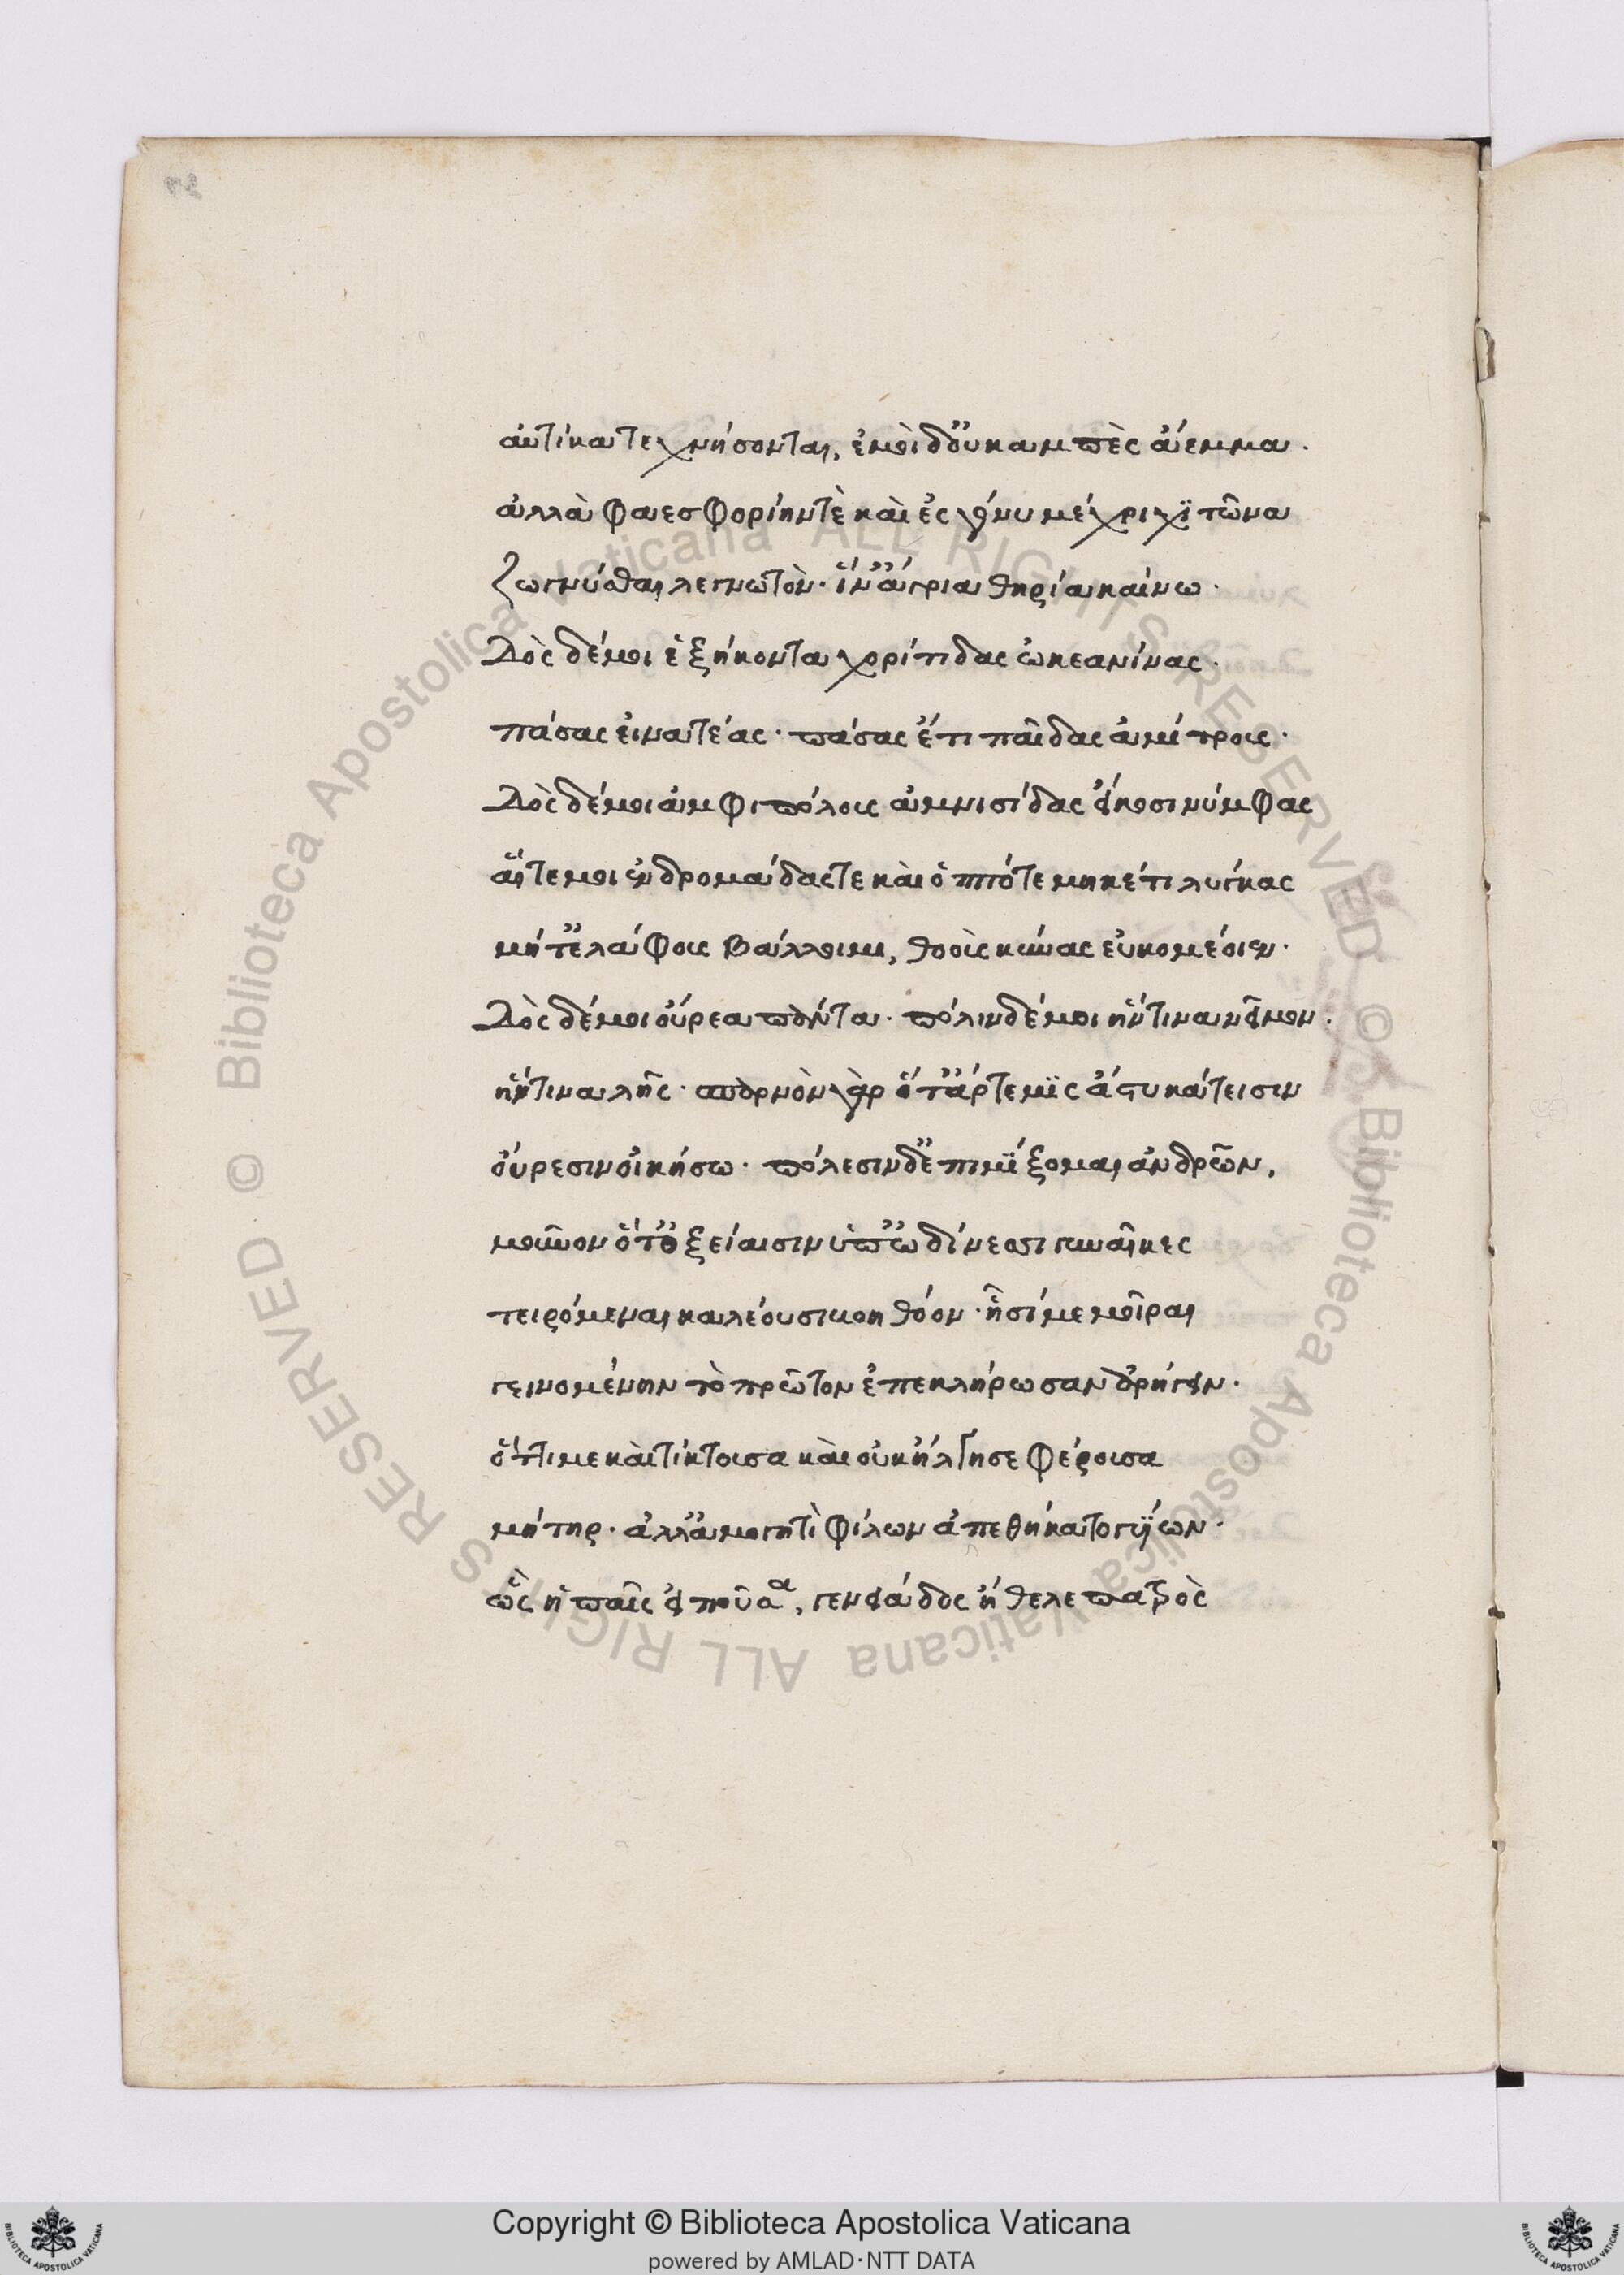 αὐτίκα τεχνήσονται, ἐμοὶ δ' εὐκαμπὲς ἄεμμα.
ἀλλὰ φαεσφορίην τὲ καὶ ἐς γόνυ μέχρι χϊτῶνα
ζώγνυσθαι λεγνωτὸν· ἵν' ἄγρια θηρία καίνω.
Δὸς δέ μοι ἑξήκοντα χορίτιδας ὠκεανίνας.
πάσας εἰναετέας· πάσας ἔτι παῖδας ἀμίτρους.
Δὸς δέ μοι ἀμφιπόλους ἀμνισίδας εἴκοσι νύμφας
αἵ τε μοι ἐνδρομάδας τε καὶ ὁππότε μηκέτι λύγκας
μήτ' ἐλάφους βάλλοιμι, θοοὺς κύνας εὐκομέοιεν.
Δὸς δέ μοι οὔρεα πάντα. πόλιν δέ μοι ἥντινα νεῖμον.
ἥντινα λῇς. σπαρνὸν γὰρ ὅτ' ἄρτεμϊς ἄστυ κάτεισιν
οὔρεσιν οἰκήσω. πόλεσιν δ' ἐπιμΐξομαι ἀνδρῶν,
μοῦνον ὅτ' ὀξείαισιν ὑπ' ὠδίνεσσι γυναῖκες
τειρόμεναι καλέουσι βοηθόον· ᾗσί με μοῖραι
γεινομένην τὸ πρῶτον ἐπεκλήρωσαν ἀρήγειν.
ὅττι με καὶ τίκτουσα καὶ οὐκ ἤλγησε φέρουσα
μήτηρ. ἀλλ' ἀμογητὶ φίλων ἀπεθήκατο γυΐων.
ὣς ἡ παῖς εἰποῦσα, γενειάδος ἤθελε πατρὸς
Copyright © Biblioteca Apostolica Vaticana
powered by AMLAD·NTT DATA